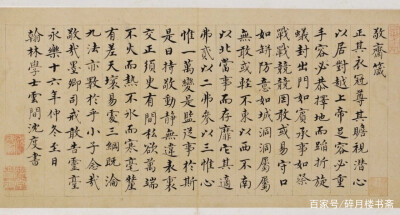 敬齋箴
正其衣冠尊其瞻視潛心
以居對越上帝足容必重
手容必恭擇地而蹈折旋
蟻封出門如賓承事如祭
戰戰兢兢罔敢或易守口
如缾防意如城洞洞屬屬
無敢或輕不東以西不南
以北當事而存靡它其適
弗貳以二弗參以三惟心
惟一萬變是監從事於斯
是曰持敬動靜無違表裏
交正須臾有間私欲萬端
不火而熱不冰而寒毫釐
有差天壤易處三綱既淪
九法亦斁於乎小子念哉
敬哉墨卿司戒敢告靈臺
永樂十六年仲冬至日
翰林學士雲間沈度書
百家号/碎月楼书斋